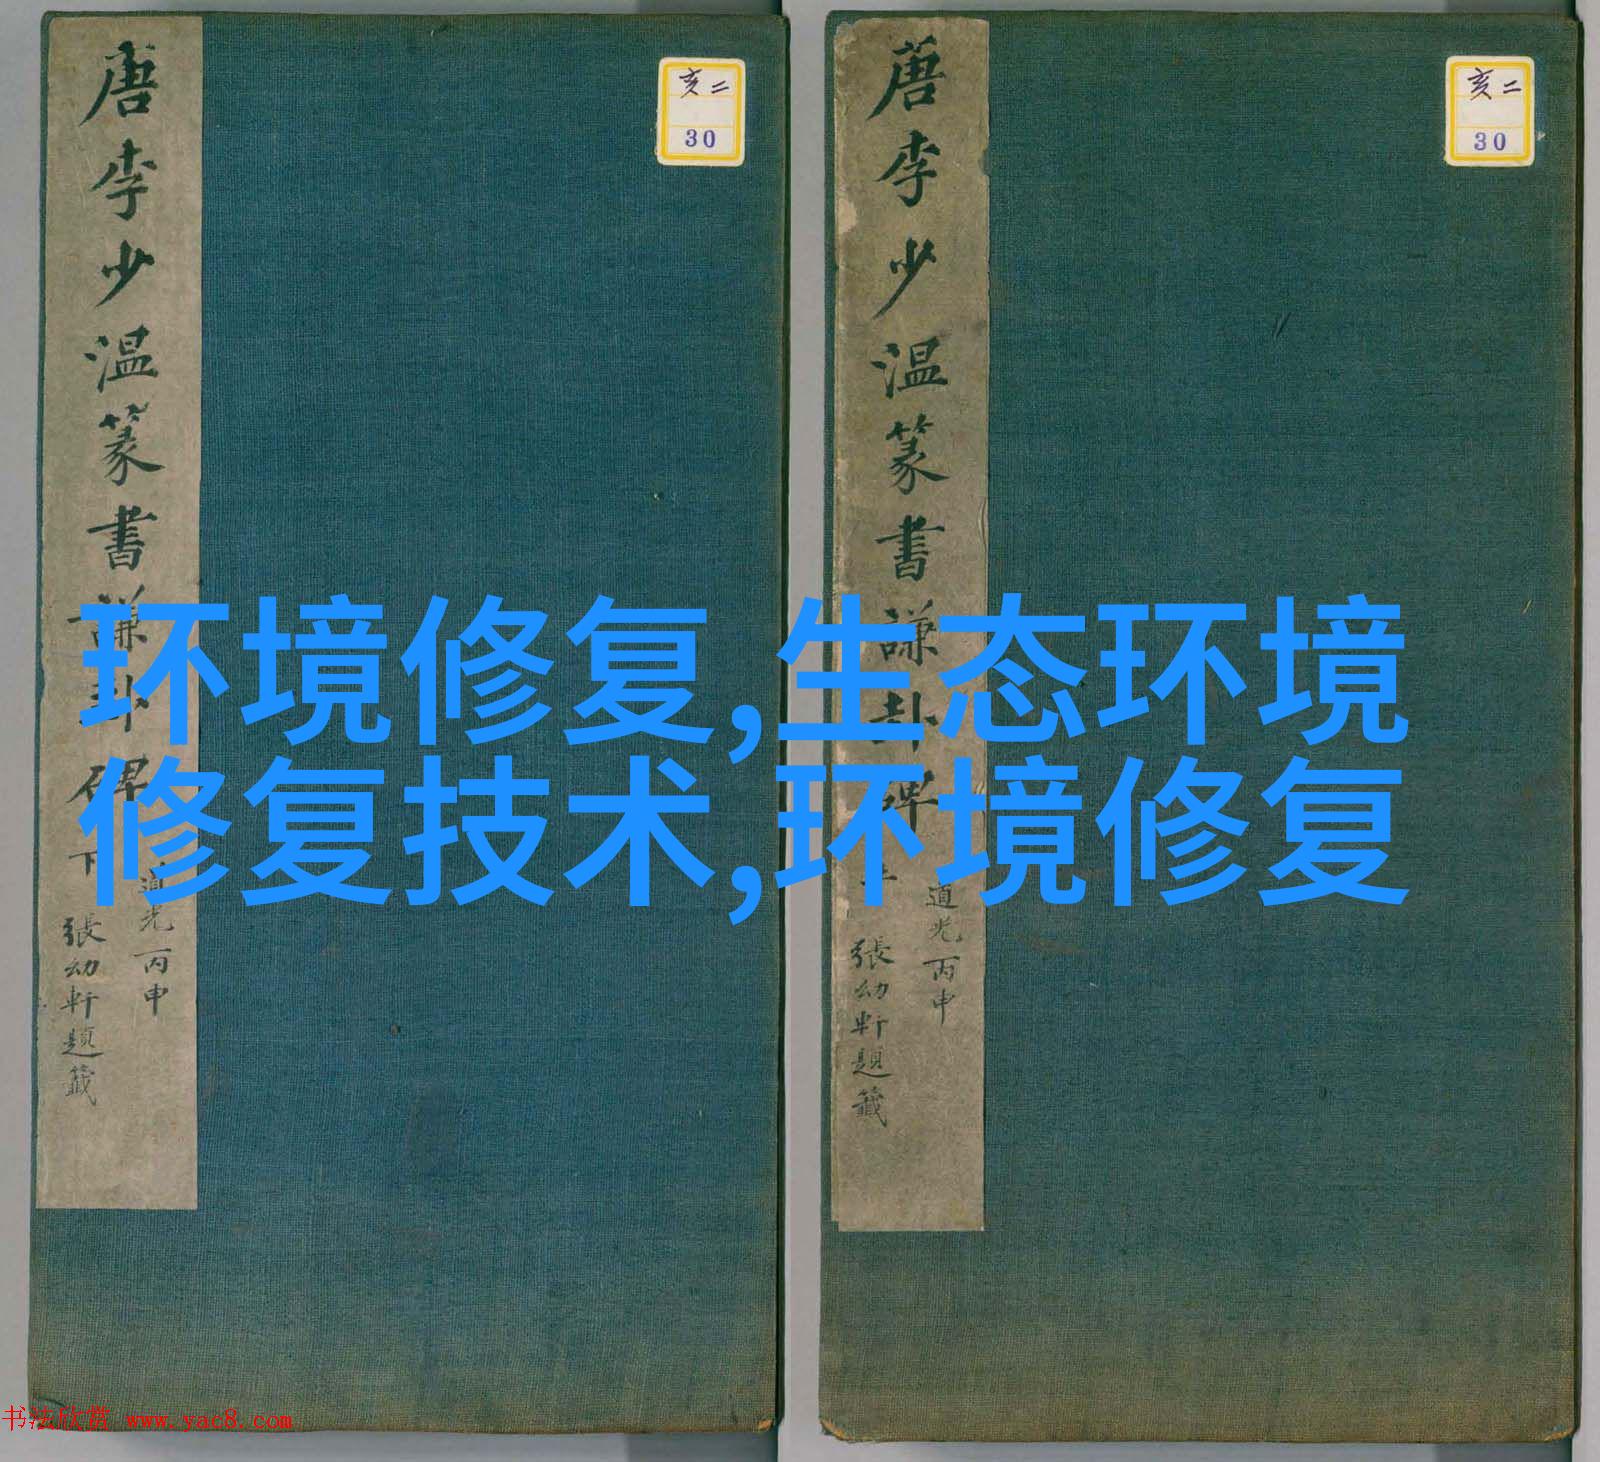 唐李少温篆書謙卦碑下
道光丙申
張幼軒題籤
亥二
30
唐李少温篆書謙卦碑上
道光丙申
張幼軒題籤
亥二
30
环境修复,生态环境
修复技术,环境修复
书法欣赏 www.yac8.com